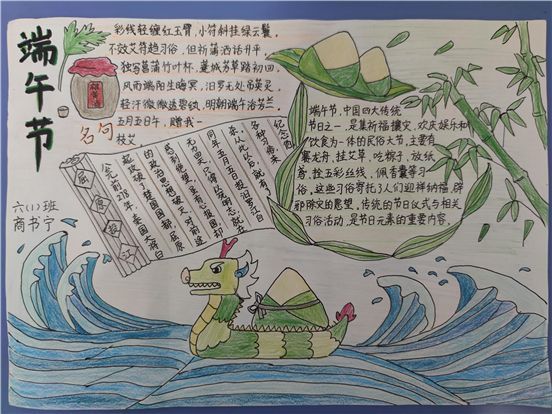 端午节
彩线轻缠红玉臂,小符斜挂绿云鬟
不效艾符趋习俗,但祈蒲酒话升平,
独写菖蒲竹叶杯,蓬城芳草踏初回
风雨端阳生晦冥,汨罗无处吊英灵
轻汗微微透碧纨,明朝端午浴芳兰
五月五日午,赠我一
枝艾
名句
雄黄酒
六(1)班
商书宁
屈原投江
公元前278年,秦国大将白
起攻破了楚国国都,屈原
的政治思想破灭,对前途
感到绝望,虽有心报国,却
无力回天,只得以死明志,就在
同年五月五日投汨罗江自
杀,从此以后,就有了
各种习俗来
纪念他
端午节,中国四大传统
节日之一,是集祈福攘灾,欢庆娱乐和
饮食为一体的民俗大节,主要有
赛龙舟,挂艾草,吃粽子,放纸
鸢,拴五彩丝线,佩香囊等习
俗,这些习俗寄托了人们迎祥纳福,辟
邪除灾的愿望,传统的节日仪式与相关
习俗活动,是节日元素的重要内容,